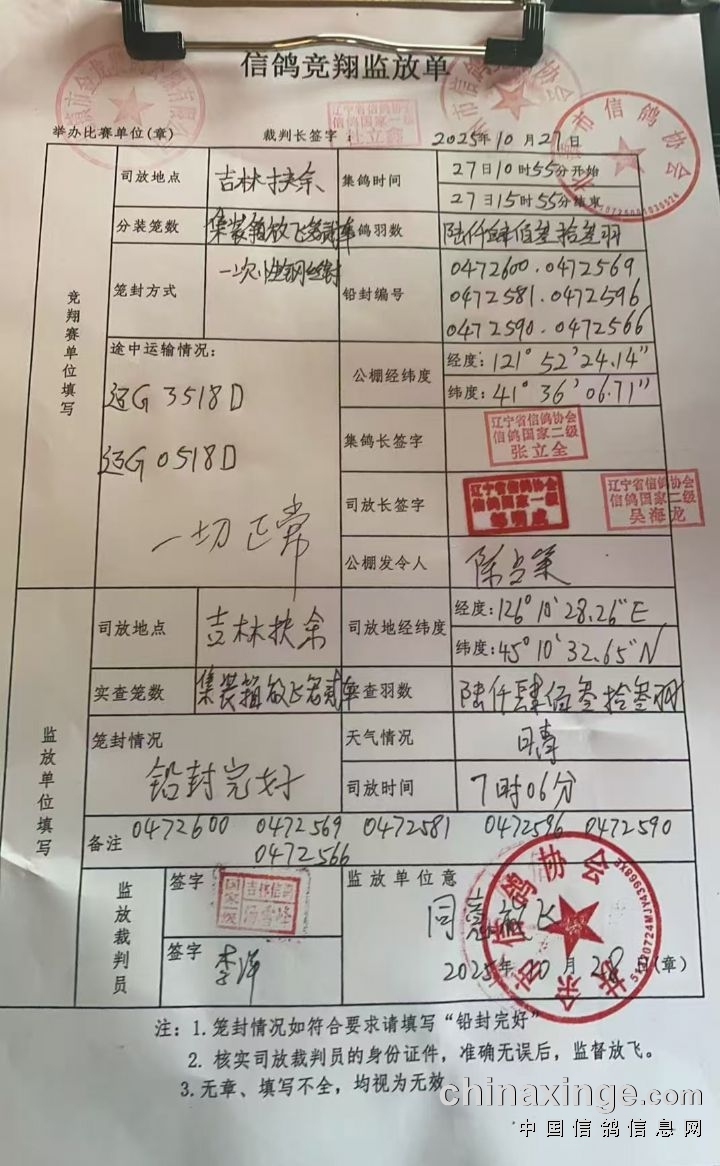 信鸽竞翔监放单
举办比赛单位(章) 裁判长签字： 2025年10月27日
竞翔赛单位填写
司放地点 吉林扶余 集鸽时间 27日10时55分开始
27日15时55分结束
分装笼数 集装箱放飞笼贰车 鸽羽数 陆仟肆佰叁拾叁羽
笼封方式 一次性钢丝封 铅封编号 0472600.0472569
0472581.0472596
0472590.0472566
途中运输情况： 公棚经纬度 经度：121°52′24.14″
纬度：41°36′06.71″
辽G 3518D
辽G 0518D
一切正常
集鸽长签字 辽宁省信鸽协会
信鸽国家二级
张立全
司放长签字 辽宁省信鸽协会
信鸽国家一级
辽宁省信鸽协会
信鸽国家二级
吴海龙
公棚发令人
监放单位填写
司放地点 吉林扶余 司放地经纬度 经度：126°10′28.26″E
纬度：45°10′32.65″N
实查笼数 集装箱放飞笼贰车 查羽数 陆仟肆佰叁拾叁羽
笼封情况 铅封完好 天气情况 晴
司放时间 7时06分
备注 0472600 0472569 0472581 0472596 0472590
0472566
监放裁判员 签字 国家一级 吉林信鸽
签字 李洋
监放单位意
同意放飞
2025年10月28日(章)
市信鸽协会
信鸽协会
注：1.笼封情况如符合要求请填写“铅封完好”
2.核实司放裁判员的身份证件，准确无误后，监督放飞。
3.无章、填写不全，均视为无效
chinaxinge.com
中国信鸽信息网